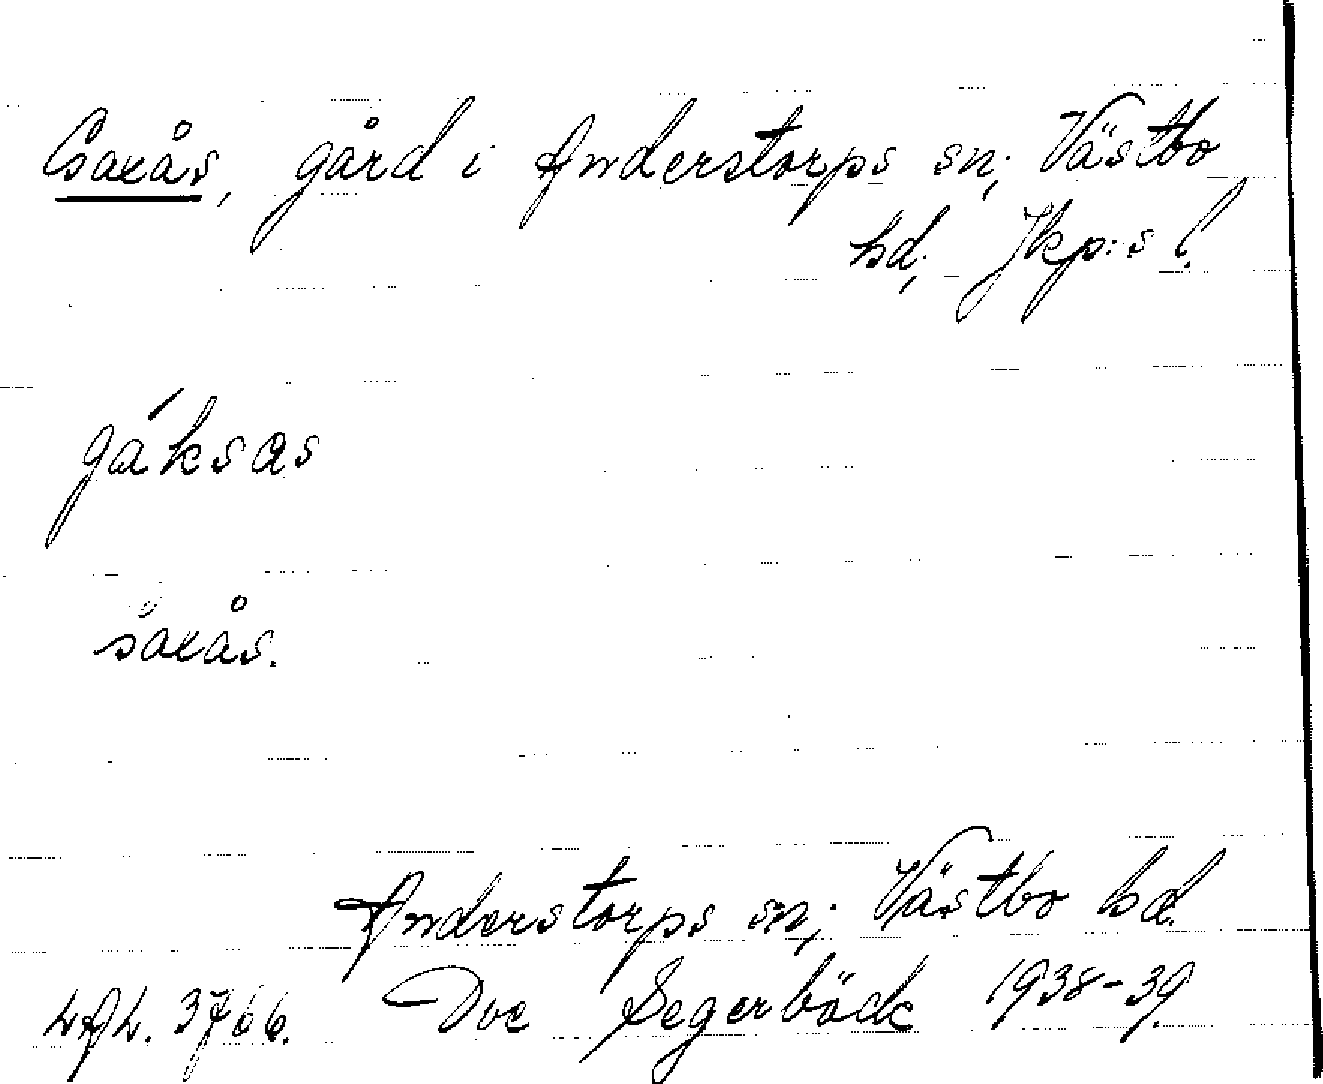 Gaxås, gård i Anderstorps sn, Västbo
hd, Jkp:s l.
gáksas
Anderstorps sn, Västbo hd.
LAL. 3766. Segerbäck 1938-39.